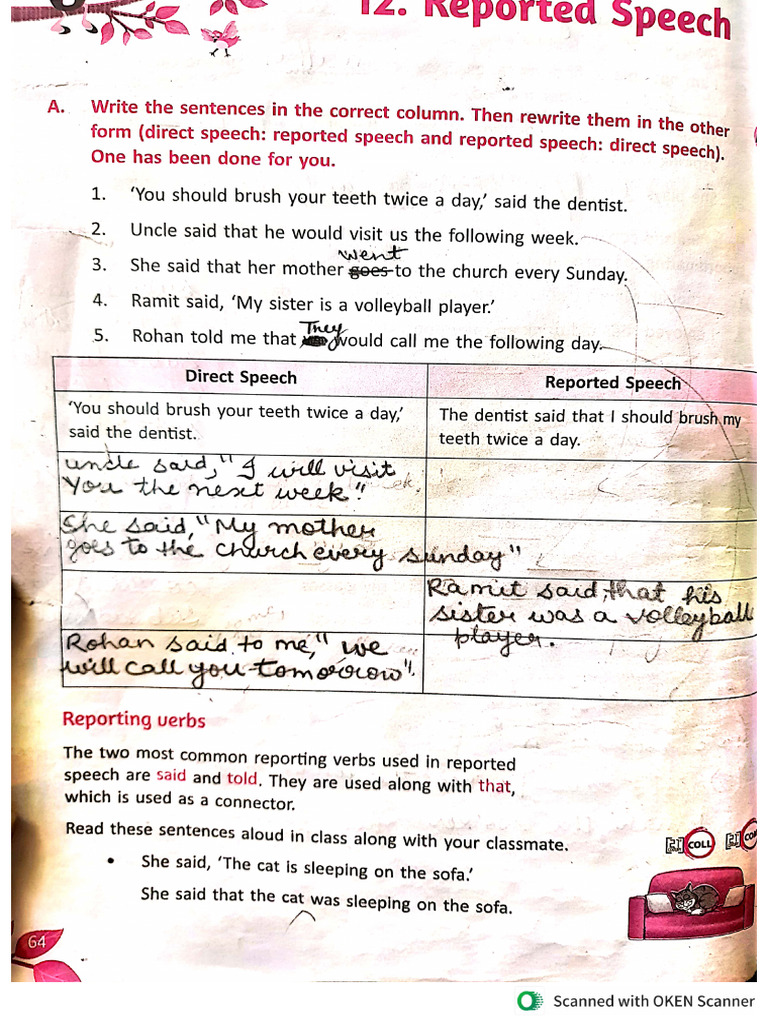 12. Reported Speech
A. Write the sentences in the correct column. Then rewrite them in the other
form (direct speech: reported speech and reported speech: direct speech).
One has been done for you.
1. ‘You should brush your teeth twice a day,’ said the dentist.
2. Uncle said that he would visit us the following week.
went
3. She said that her mother goes to the church every Sunday.
4. Ramit said, ‘My sister is a volleyball player.’
They
5. Rohan told me that would call me the following day.
Direct Speech Reported Speech
‘You should brush your teeth twice a day,’ The dentist said that I should brush my
said the dentist. teeth twice a day.
uncle said, "I will visit
You the next week"
She said, "My mother
goes to the church every sunday"
Ramit said, that his
sister was a volleyball
player.
Rohan said to me, "we
will call you tomorrow".
Reporting verbs
The two most common reporting verbs used in reported
speech are said and told. They are used along with that,
which is used as a connector.
Read these sentences aloud in class along with your classmate.
COLL
• She said, ‘The cat is sleeping on the sofa.’
She said that the cat was sleeping on the sofa.
64
Scanned with OKEN Scanner